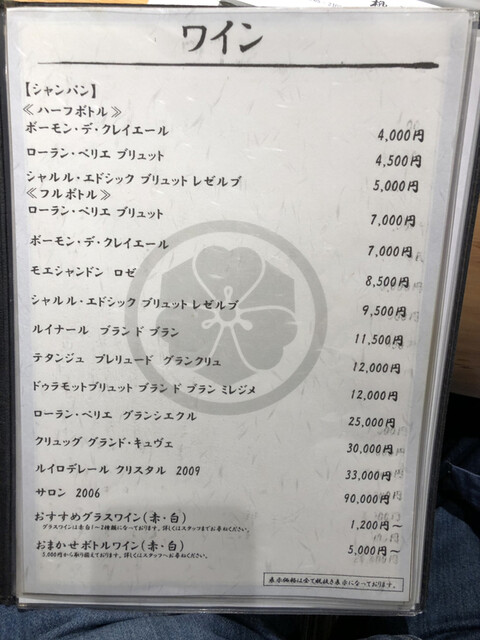 ワイン
【シャンパン】
≪ハーフボトル≫
ボーモン・デ・クレイエール 4,000円
ローラン・ペリエ ブリュット 4,500円
シャルル・エドシック ブリュット レゼルブ 5,000円
≪フルボトル≫
ローラン・ペリエ ブリュット 7,000円
ボーモン・デ・クレイエール 7,000円
モエシャンドン ロゼ 8,500円
シャルル・エドシック ブリュット レゼルブ 9,500円
ルイナール ブラン ド ブラン 11,500円
テタンジュ プレリュード グランクリュ 12,000円
ドゥラモットブリュット ブラン ド ブラン ミレジメ 12,000円
ローラン・ペリエ グランシエクル 25,000円
クリュッグ グランド・キュヴェ 30,000円
ルイロデレール クリスタル 2009 33,000円
サロン 2006 90,000円
おすすめグラスワイン(赤・白) 1,200円~
グラスワインは赤白1~2種類になっております。詳しくはスタッフまでお尋ねください。
おまかせボトルワイン(赤・白) 5,000円~
5,000円から取り揃えております。詳しくはスタッフへお尋ねください。
表示価格は全て税抜き表示になっております。